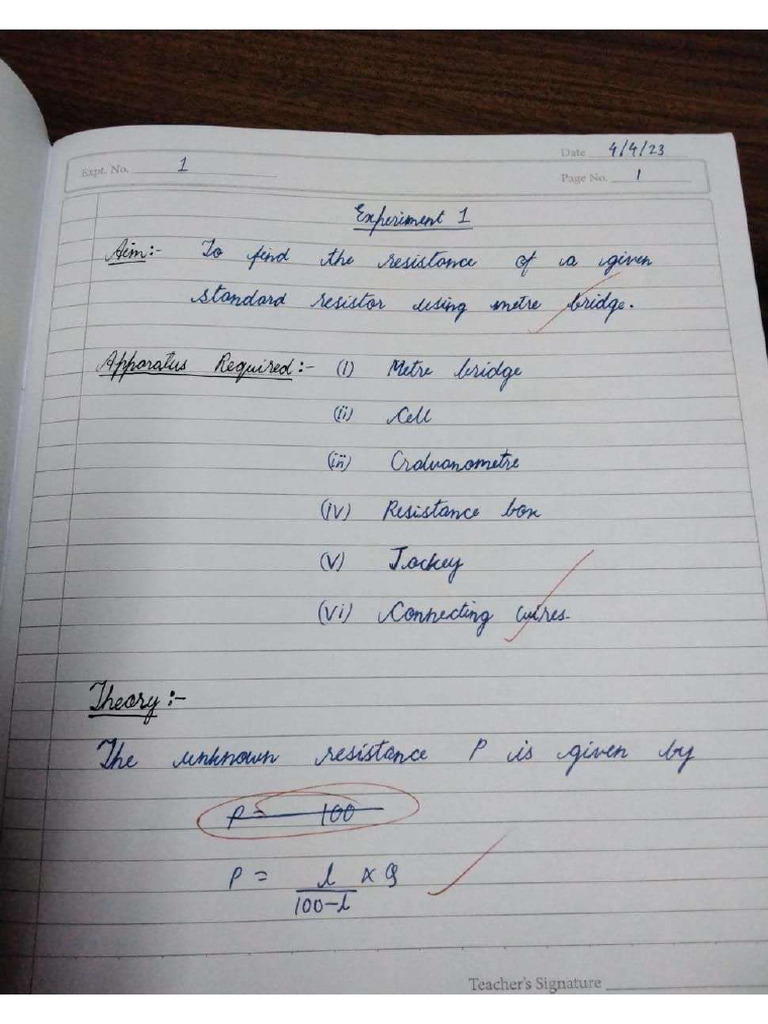 Date 4/4/23
Expt. No. 1
Page No. 1
Experiment 1
Aim:- To find the resistance of a given
standard resistor using metre bridge.
Apparatus Required:- (i) Metre bridge
(ii) Cell
(iii) Cralvanometre
(iv) Resistance box
(v) Jockey
(vi) Connecting wires.
Theory:-
The unknown resistance P is given by
P = 100
P = l/100-l × Q
Teacher's Signature